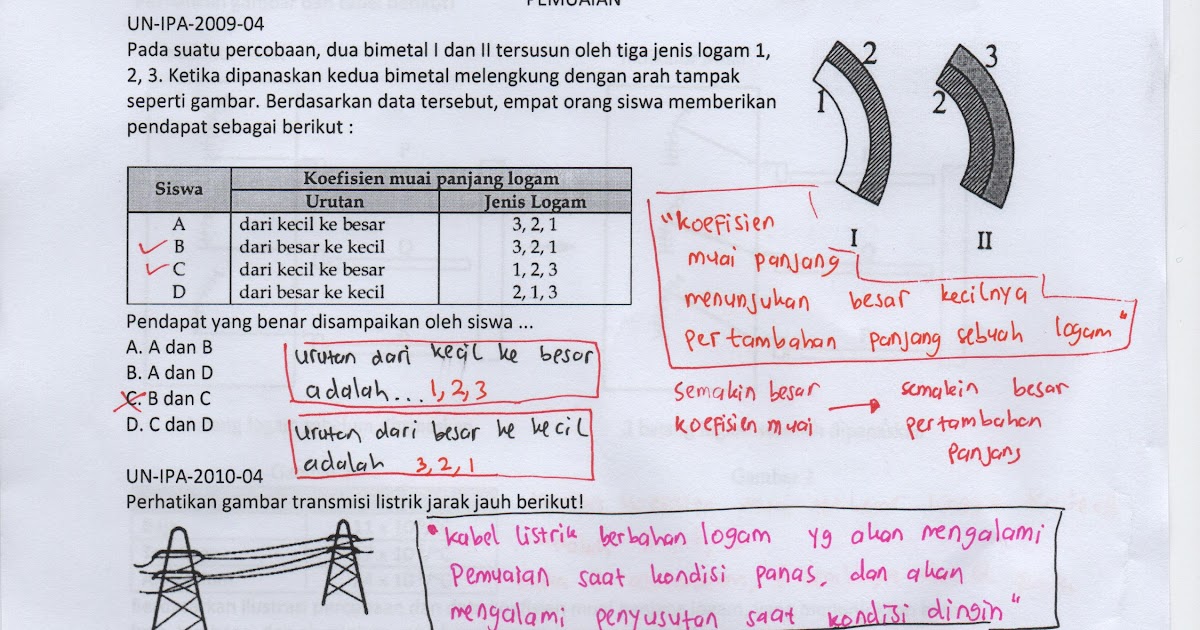 PEMUAIAN
UN-IPA-2009-04
Pada suatu percobaan, dua bimetal I dan II tersusun oleh tiga jenis logam 1,
2, 3. Ketika dipanaskan kedua bimetal melengkung dengan arah tampak
seperti gambar. Berdasarkan data tersebut, empat orang siswa memberikan
pendapat sebagai berikut :
2
1
3
2
I
II
Siswa Koefisien muai panjang logam
Urutan Jenis Logam
A dari kecil ke besar 3, 2, 1
B dari besar ke kecil 3, 2, 1
C dari kecil ke besar 1, 2, 3
D dari besar ke kecil 2, 1, 3
"Koefisien
muai panjang
menunjukan besar kecilnya
pertambahan panjang sebuah logam"
Pendapat yang benar disampaikan oleh siswa ...
A. A dan B
B. A dan D
C. B dan C
D. C dan D
Urutan dari kecil ke besar
adalah... 1, 2, 3
Urutan dari besar ke kecil
adalah 3, 2, 1
Semakin besar
koefisien muai
semakin besar
pertambahan
panjang
UN-IPA-2010-04
Perhatikan gambar transmisi listrik jarak jauh berikut!
"Kabel listrik berbahan logam yg akan mengalami
Pemuaian saat kondisi panas, dan akan
mengalami penyusutan saat kondisi dingin"